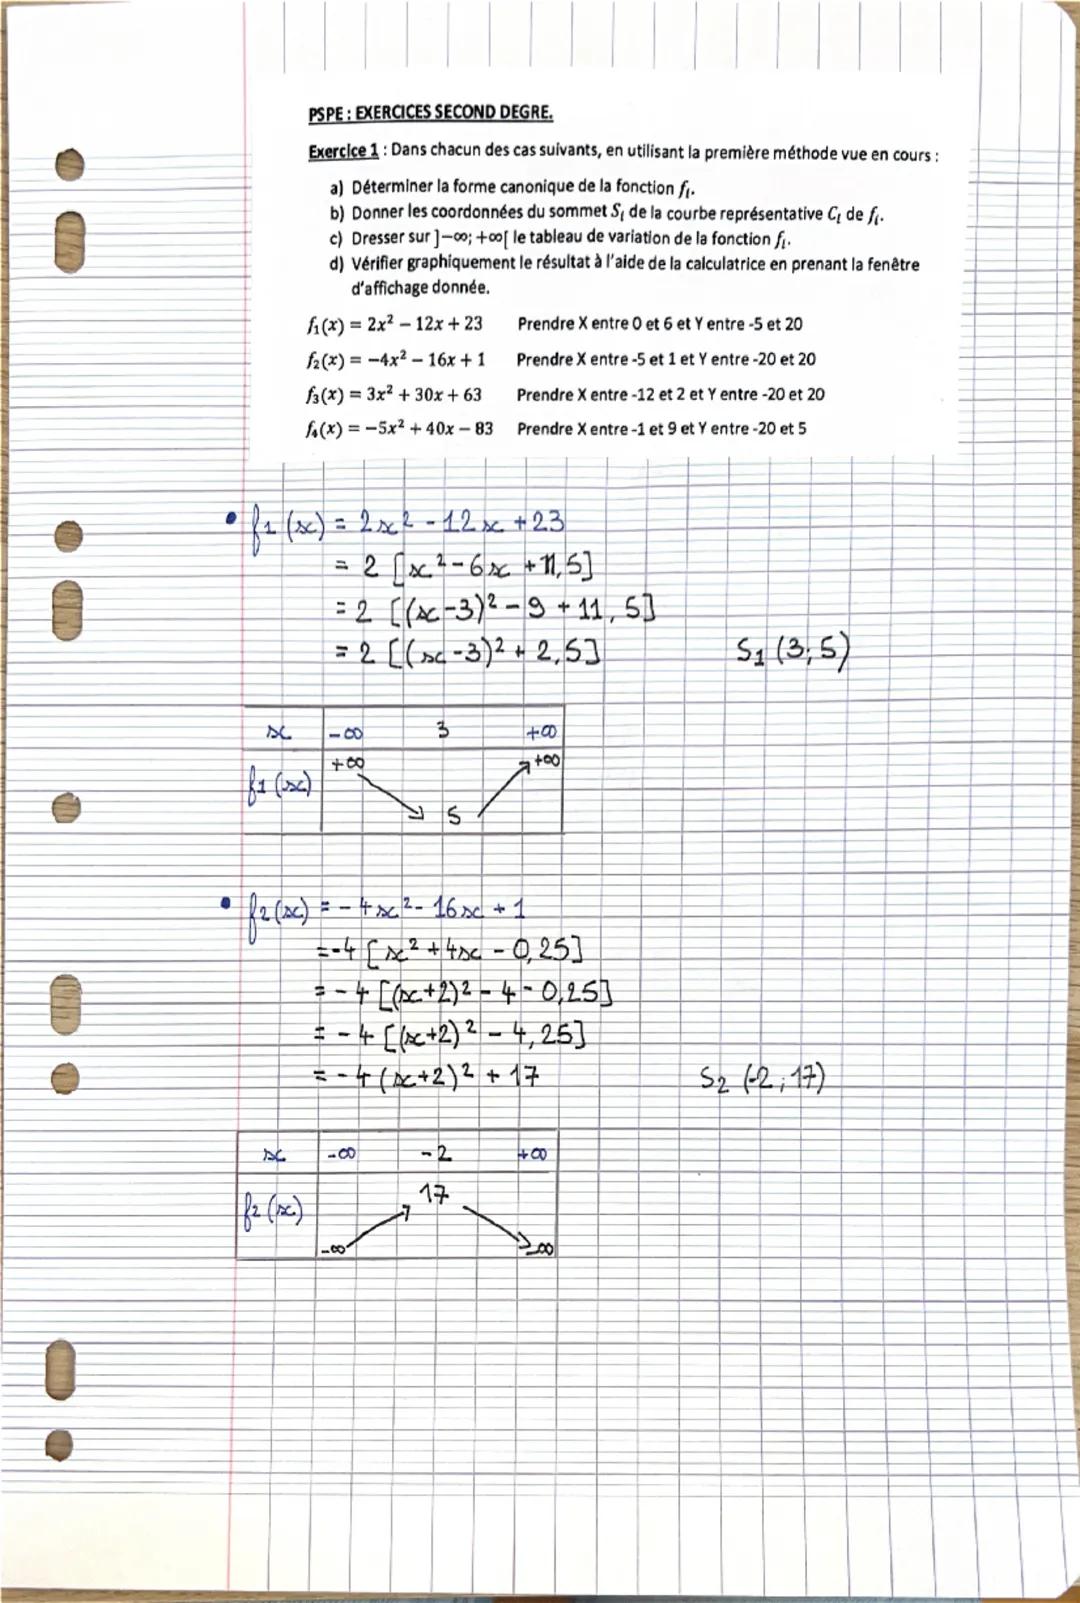 PSPE : EXERCICES SECOND DEGRE.
Exercice 1 : Dans chacun des cas suivants, en utilisant la première méthode vue en cours :
a) Déterminer la forme canonique de la fonction fᵢ.
b) Donner les coordonnées du sommet Sᵢ de la courbe représentative Cᵢ de fᵢ.
c) Dresser sur ]−∞; +∞[ le tableau de variation de la fonction fᵢ.
d) Vérifier graphiquement le résultat à l'aide de la calculatrice en prenant la fenêtre
d'affichage donnée.
f₁(x) = 2x² − 12x + 23 Prendre X entre 0 et 6 et Y entre -5 et 20
f₂(x) = −4x² − 16x + 1 Prendre X entre -5 et 1 et Y entre -20 et 20
f₃(x) = 3x² + 30x + 63 Prendre X entre -12 et 2 et Y entre -20 et 20
f₄(x) = −5x² + 40x − 83 Prendre X entre -1 et 9 et Y entre -20 et 5
• f₁(x) = 2x² - 12x + 23
= 2 [x² - 6x + 11,5]
= 2 [(x-3)² - 9 + 11,5]
= 2 [(x-3)² + 2,5] S₁ (3; 5)
x -∞ 3 +∞
+∞ +∞
f₁(x)
5
• f₂(x) = -4x² - 16x + 1
= -4 [x² + 4x - 0,25]
= -4 [(x+2)² - 4 - 0,25]
= -4 [(x+2)² - 4,25]
= -4 (x+2)² + 17 S₂ (-2 ; 17)
x -∞ -2 +∞
17
f₂(x)
-∞ -∞